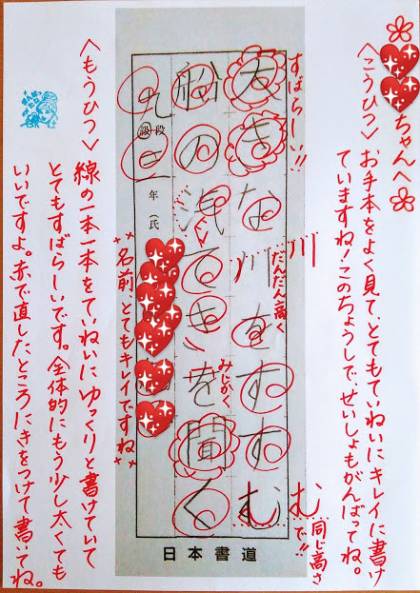 ちゃんへ
〈こうひつ〉お手本をよく見て、とてもていねいにキレイに書け
ていますね！このちょうしで、せいしょもがんばってね。
すばらしい!!
大きな川をすすむ
だんだん高く
む
同じ高さ
で!!
船の汽てきを聞く
みじかく
九
段
級
年
(氏
名前、とてもキレイですね
日本書道
〈もうひつ〉
線の一本一本をていねいにゆっくりと書けていて
とてもすばらしいです。全体的にもう少し太くても
いいですよ。赤で直したところにきをつけて書いてね。